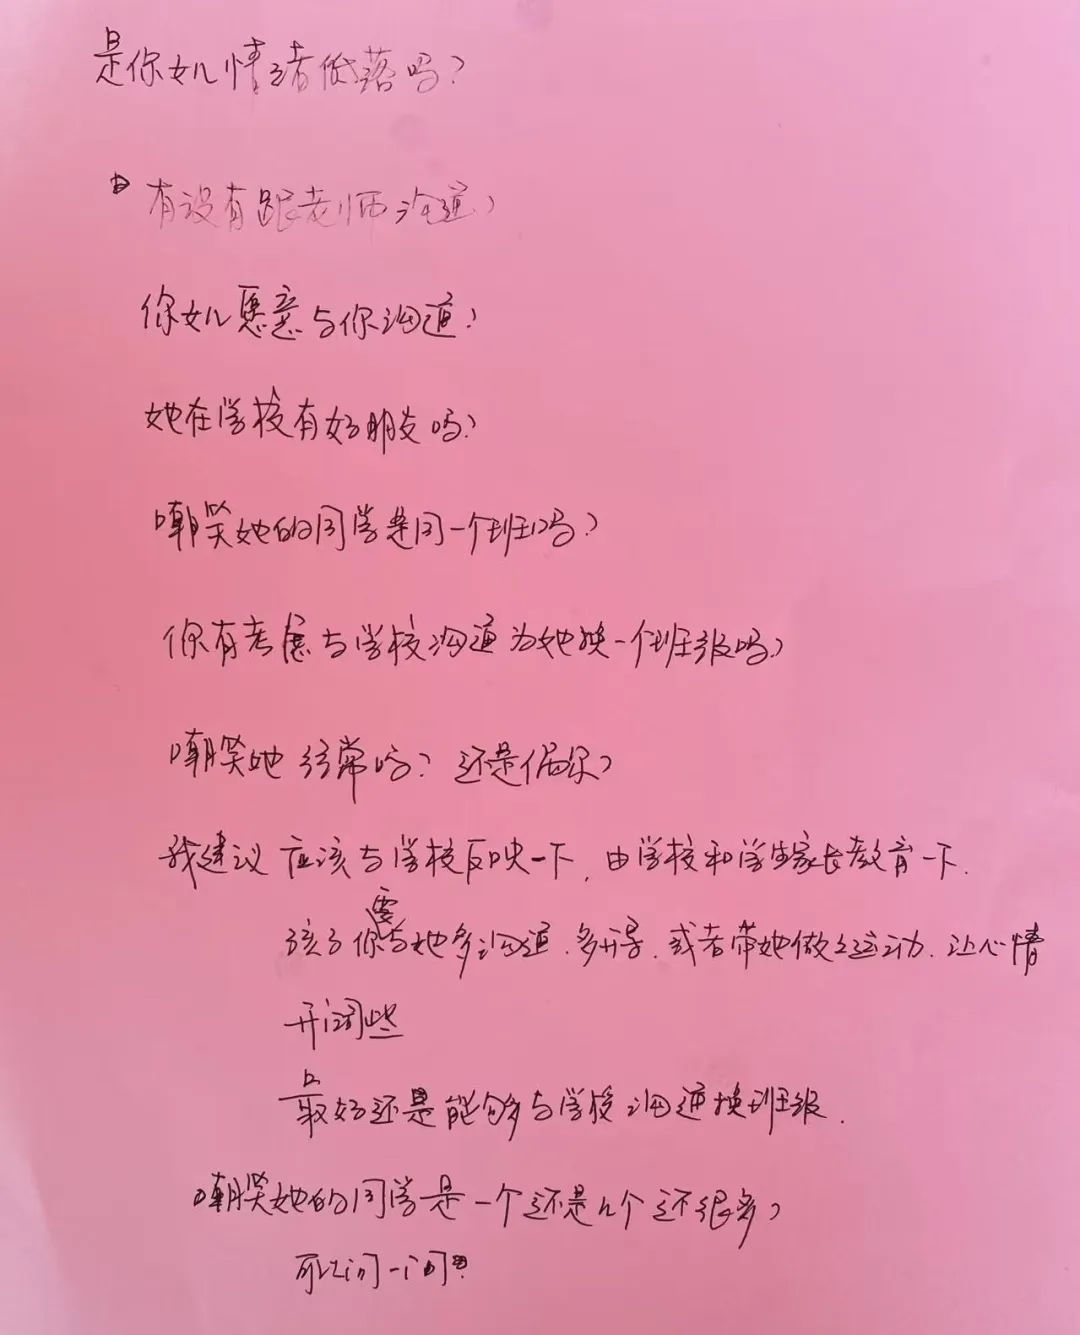 是你女儿情绪低落吗?
有没有跟老师沟通?
你女儿愿意与你沟通?
她在学校有好朋友吗?
嘲笑她的同学是同一个班吗?
你有考虑与学校沟通为她换一个班级吗?
嘲笑她经常吗? 还是偶尔?
我建议 应该与学校反映一下, 由学校和学生家长教育一下.
孩子你要与她多沟通.多开导.或者带她做些运动.让心情
开阔些
最好还是能够与学校沟通换班级.
嘲笑她的同学是一个还是几个还很多?
可以问一问?